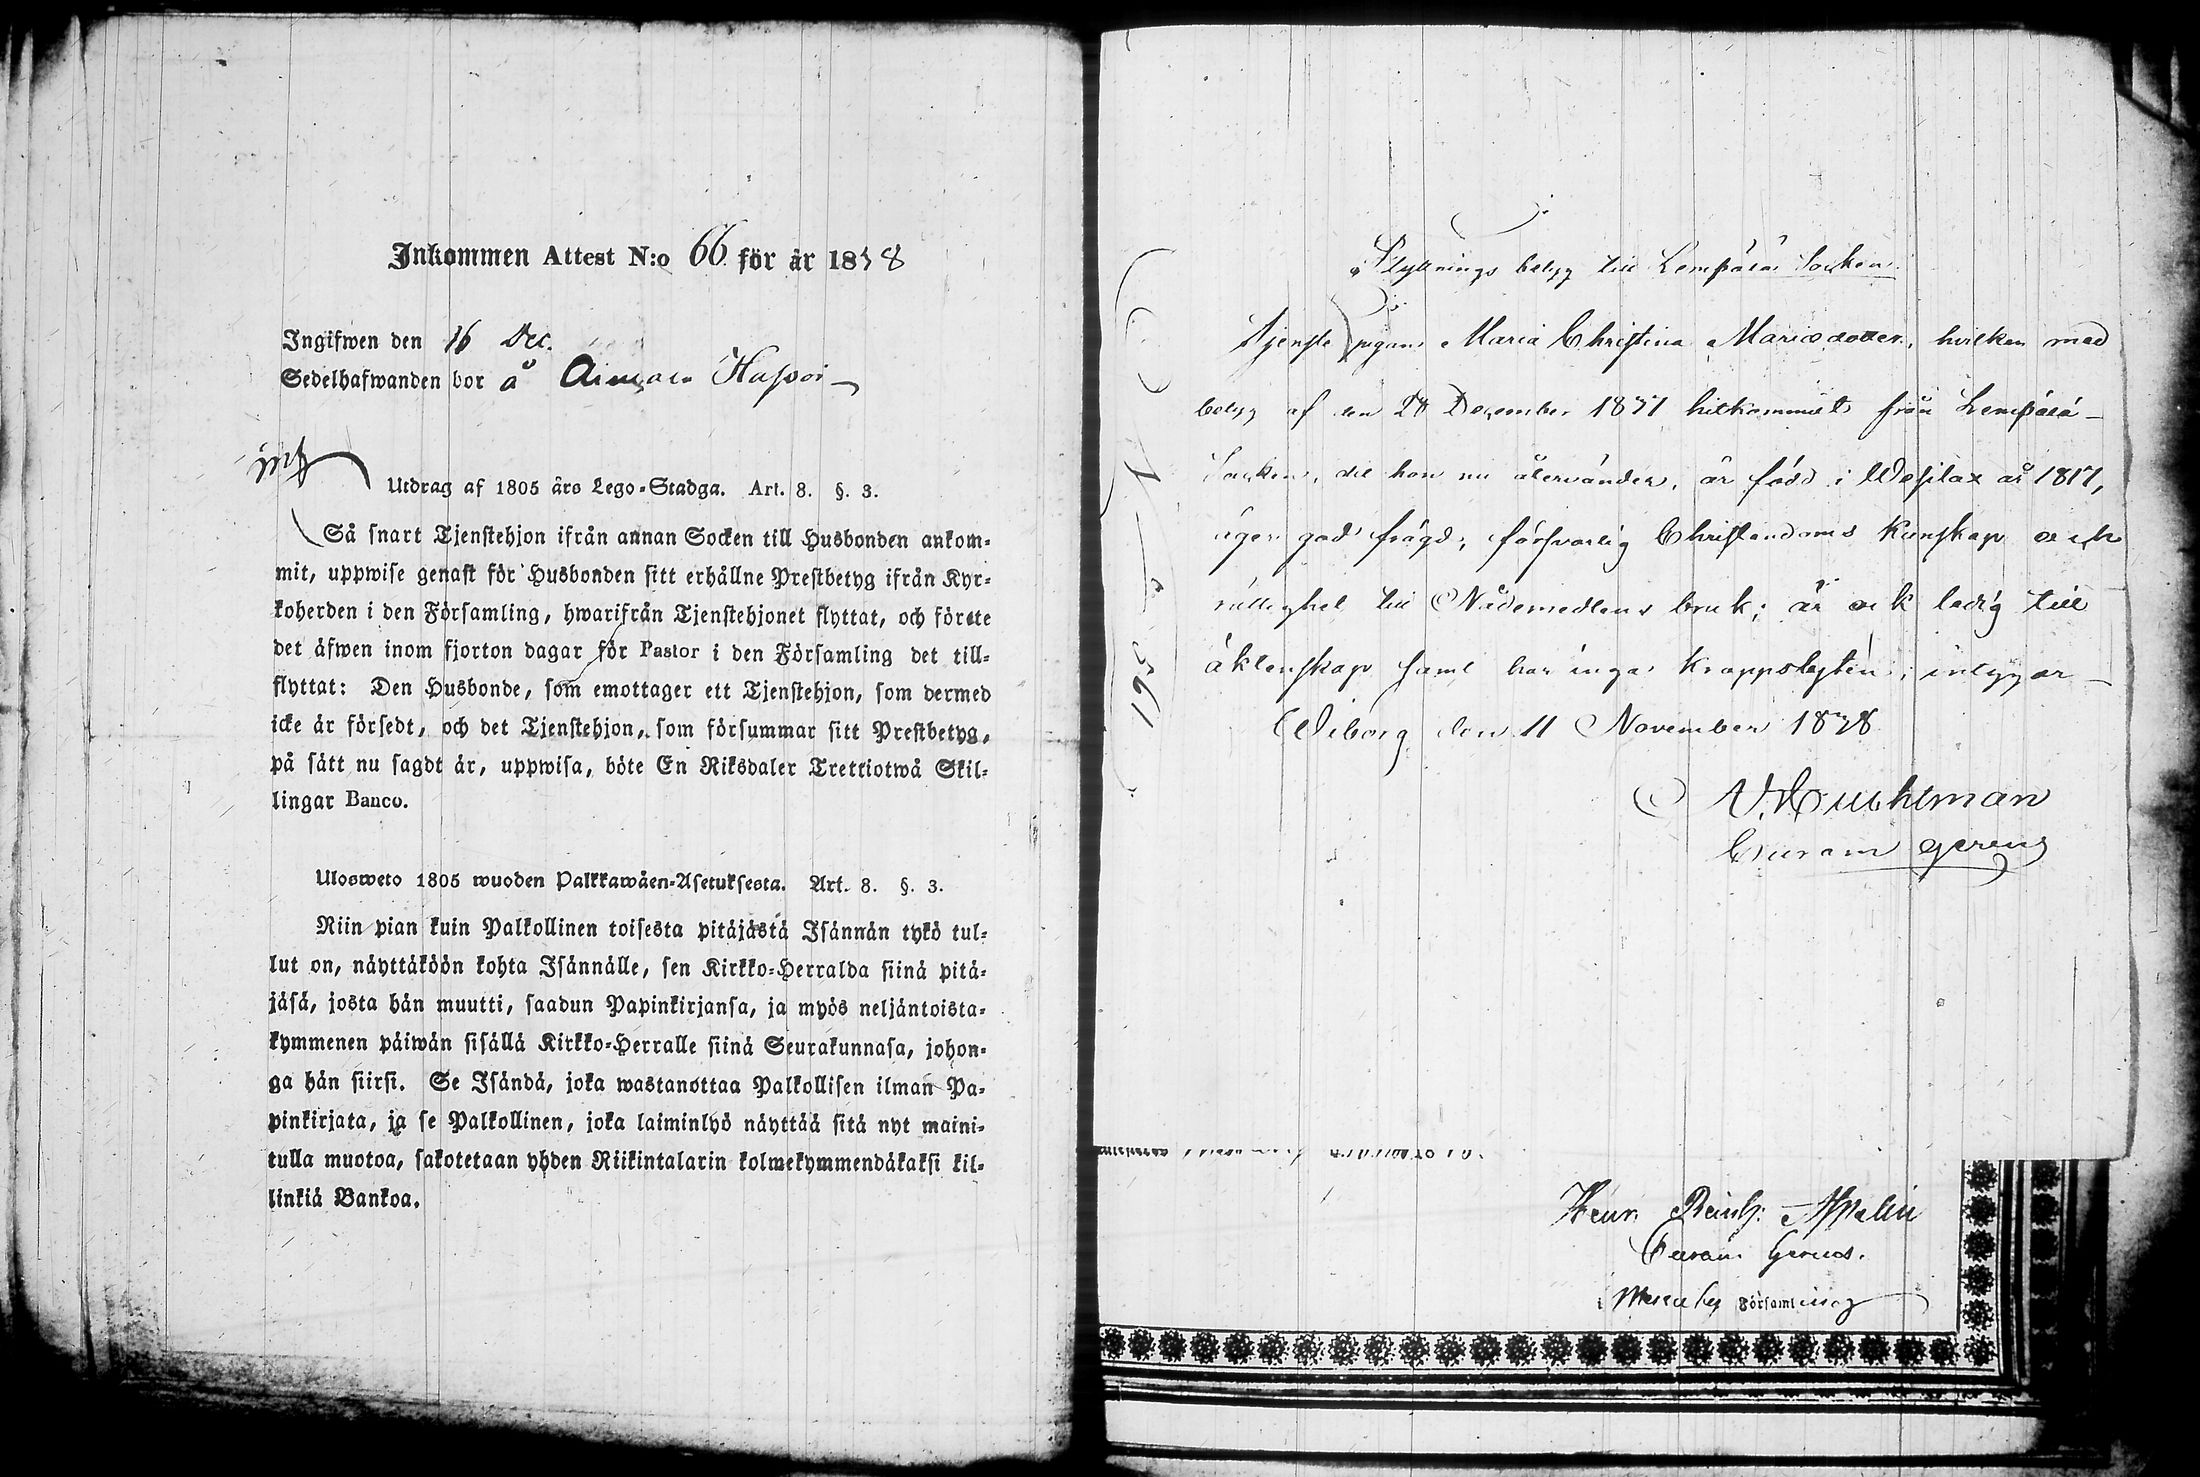 Inkommen Attest N:o 66 för år 1838
Ingifwen den 16 Dec.
Sedelhafwanden bor å
Utdrag af 1805 års Lego-Stadga. Art. 8. §. 3.
Så snart Tjenstehjon ifrån annan Socken till Husbonden ankom-
mit, uppwise genast för Husbonden sitt erhållne Prestbetyg ifrån Kyr-
koherden i den Församling, hwarifrån Tjenstehjonet flyttat, och förete
det äfwen inom fjorton dagar för Pastor i den Församling det till-
flyttat: Den Husbonde, som emottager ett Tjenstehjon, som dermed
icke är försedt, och det Tjenstehjon, som försummar sitt Prestbetyg,
på sätt nu sagdt är, uppwisa, böte En Riksdaler Trettiotwå Skil-
lingar Banco.
Ulosweto 1805 wuoden Palkkawäen-Asetuksesta. Art. 8. §. 3.
Niin pian kuin Palkollinen toisesta pitäjästä Isännän tykö tul-
lut on, näyttäköön kohta Isännälle, sen Kirkko-Herralda siinä pitä-
jäsä, josta hän muutti, saadun Papinkirjansa, ja myös neljäntoista-
kymmenen päiwän sisällä Kirkko-Herralle siinä Seurakunnasa, johon-
ga hän siirsi. Se Isändä, joka wastanottaa Palkollisen ilman Pa-
pinkirjata, ja se Palkollinen, joka laiminlyö näyttää sitä nyt maini-
tulla muotoa, sakotetaan yhden Riikintalarin kolmekymmendäkaksi kil-
linkiä Bankoa.
Flyttnings betyg till Lempäälä Socken
Tjenste pigan Maria Christina Mariædotter, hvilken med
betyg af den 28 December 1837 hitkommit från Lempäälä
Socken, dit hon nu återvänder, är född i Wesilax år 1817,
äger god frägd, försvarlig Christendoms kunskap och
rättighet till Nådemedlens bruk; är ock ledig till
äktenskap samt har inga kroppslyten; intygar
Wiborg den 11 November 1838
Curam gerens
Curam Gerens.
i Församling